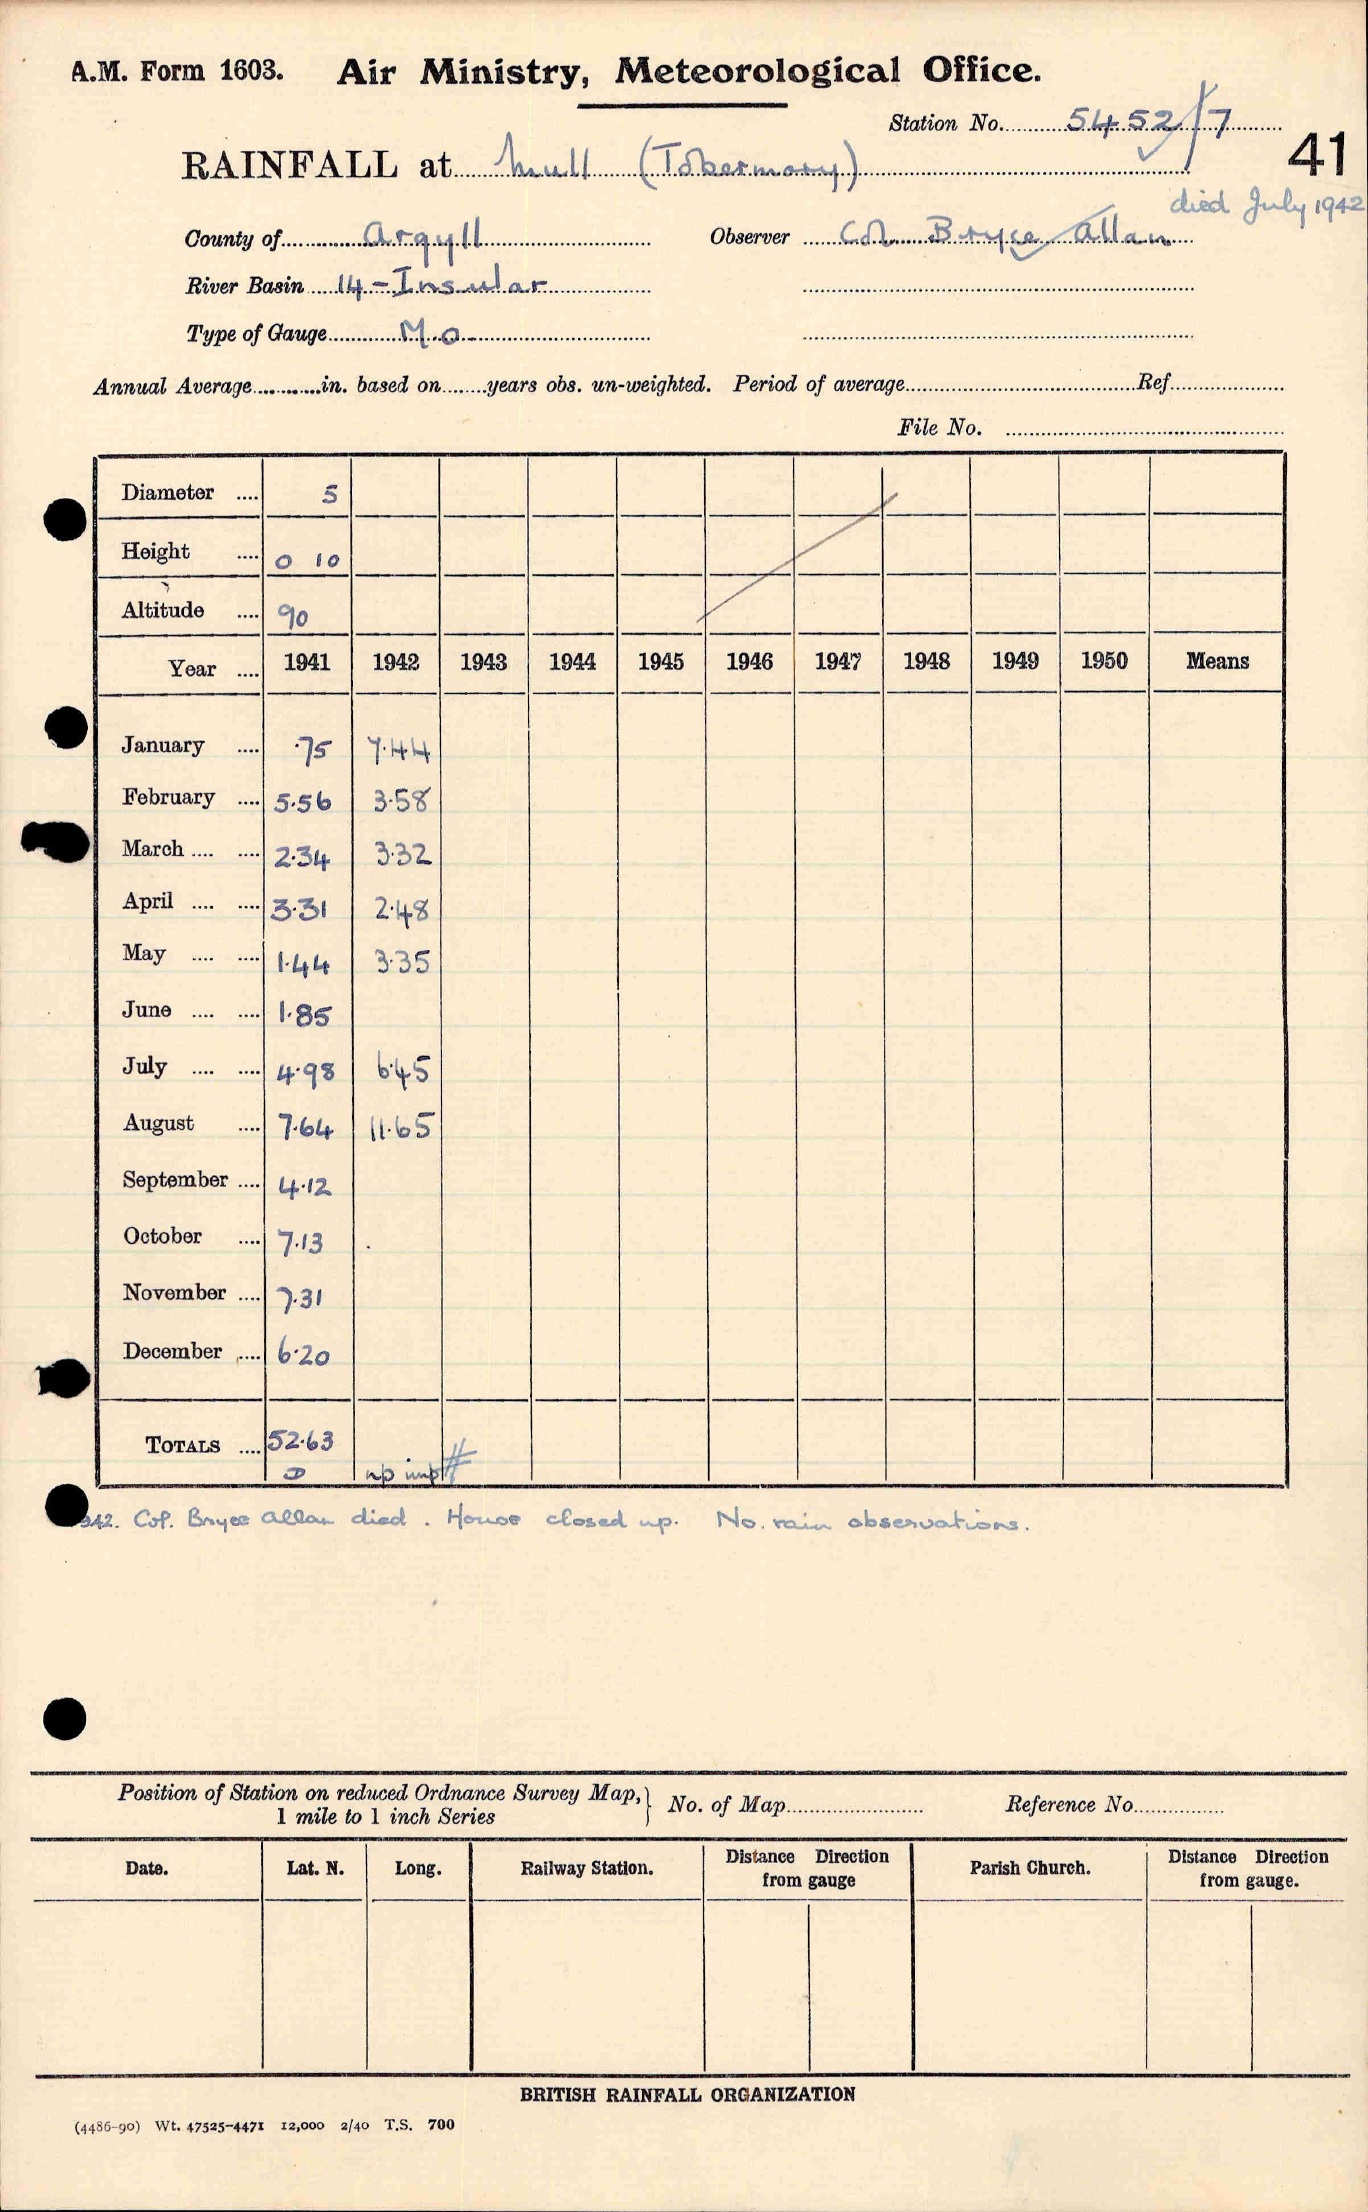 A.M. Form 1603. Air Ministry, Meteorological Office.
Station No. 5452/7
41
RAINFALL at Mull (Tobermory)
died July 1942
County of Argyll Observer Col. Bryce Allan
River Basin 14-Insular
Type of Gauge Mo
Annual Average in. based on years obs. un-weighted. Period of average Ref.
File No.
Diameter .... 5
Height .... 0 10
Altitude .... 90
Year .... 1941 1942 1943 1944 1945 1946 1947 1948 1949 1950 Means
January .... .75 7.44
February .... 5.56 3.58
March .... .... 2.34 3.32
April .... .... 3.31 2.48
May .... .... 1.44 3.35
June .... .... 1.85
July .... .... 4.98 6.45
August .... 7.64 11.65
September .... 4.12
October .... 7.13
November .... 7.31
December .... 6.20
TOTALS .... 52.63
np imp #
942. Col. Bryce Allan died. House closed up. No rain observations.
Position of Station on reduced Ordnance Survey Map, } No. of Map Reference No.
1 mile to 1 inch Series
Date. Lat. N. Long. Railway Station. Distance Direction from gauge Parish Church. Distance Direction from gauge.
BRITISH RAINFALL ORGANIZATION
(4486-90) Wt. 47525-4471 12,000 2/40 T.S. 700